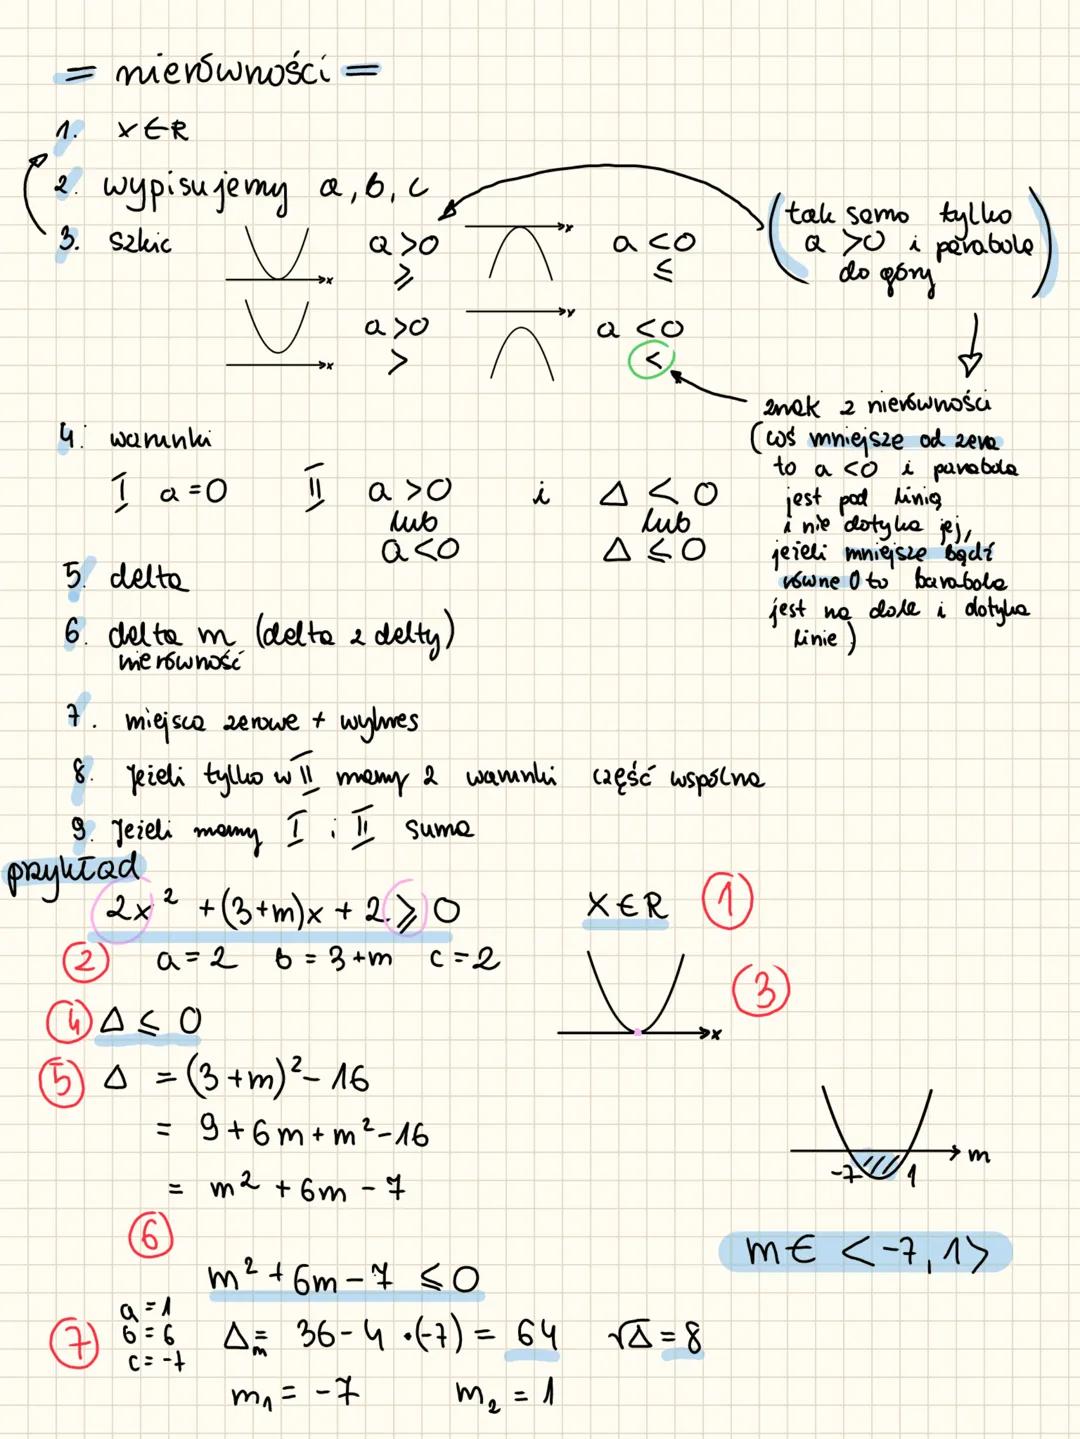 = nierówności =
1. x∈R
2. wypisujemy a, b, c
3. szkic
x
a>0
⩾
x
a<0
≤
(tak samo tylko
a >0 i parabola
do góry)
x
a>0
>
x
a<0
<
znak z nierówności
(coś mniejsze od zera
to a<0 i parabola
jest pod linią
i nie dotyka jej,
jeżeli mniejsze bądź
równe 0 to barabola
jest na dole i dotyka
linie)
4. warunki
I a=0 II a>0 i Δ<0
lub lub
a<0 Δ≤0
5. delta
6. delta m (delta z delty)
nierówność
7. miejsca zerowe + wykres
8. Jeżeli tylko w II mamy 2 warunki część wspólna
9. Jeżeli mamy I i II suma
przykład
2x² + (3+m)x + 2 ⩾ 0 x∈R 1
2 a=2 b=3+m c=2
3
x
4 Δ ≤ 0
5 Δ = (3+m)²-16
= 9+6m+m²-16
= m²+6m-7
m
-7 1
6
m∈ <-7,1>
m²+6m-7 ≤0
7
a=1
b=6
c=-7
Δm= 36-4·(-7) = 64 √Δ=8
m₁ = -7 m₂ = 1